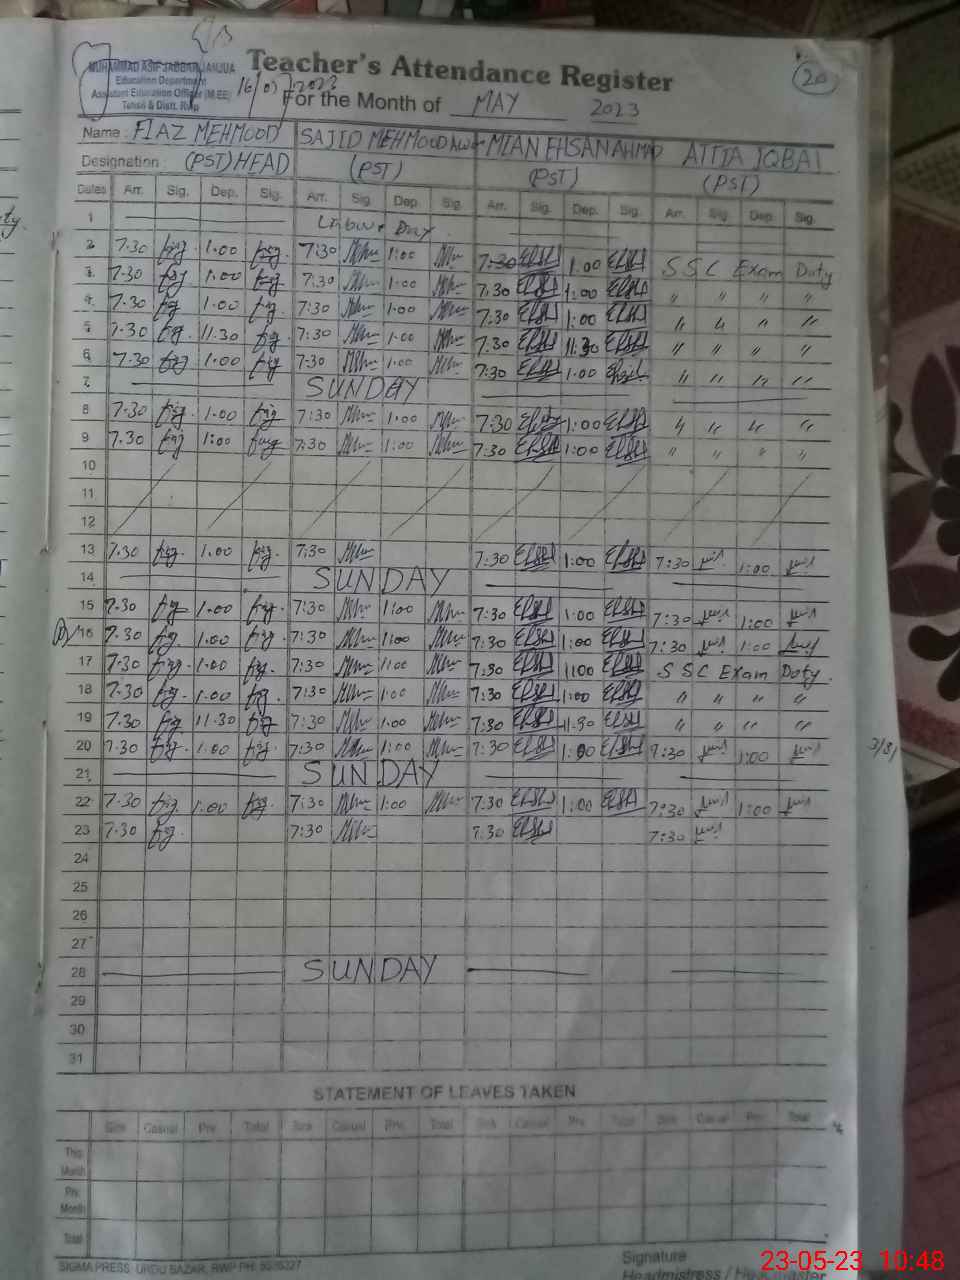 20
MUHAMMAD ASIF JABBAR JANJUA
Education Department
Assistant Education Officer (M-EE)
Tehsil & Distt. Rwp
Teacher's Attendance Register
For the Month of MAY 2023
Name : FIAZ MEHMOOD SAJID MEHMOOD MIAN EHSAN AHMAD ATTIA IQBAL
Designation : (PST) HEAD (PST) (PST) (PST)
Dates Arr. Sig. Dep. Sig. Arr. Sig. Dep. Sig. Arr. Sig. Dep. Sig. Arr. Sig. Dep. Sig.
1 Labour Day
2 7.30 1.00 7:30 1:00 7:30 1:00 SSC Exam Duty
3 7.30 1.00 7:30 1:00 7:30 1:00 " " " "
4 7.30 1.00 7:30 1:00 7:30 1:00 " " " "
5 7.30 11.30 7:30 1:00 7:30 11:30 " " " "
6 7.30 1.00 7:30 1:00 7:30 1:00 " " " "
7 SUNDAY
8 7.30 1.00 7:30 1:00 7:30 1:00 " " " "
9 7.30 1:00 7:30 1:00 7:30 1:00 " " " "
10
11
12
13 7.30 1.00 7:30 7:30 1:00 7:30 1:00
14 SUNDAY
15 7.30 1.00 7:30 1:00 7:30 1:00 7:30 1:00
16 7.30 1.00 7:30 1:00 7:30 1:00 7:30 1:00
17 7.30 1.00 7:30 1:00 7:30 1:00 SSC Exam Duty.
18 7.30 1.00 7:30 1:00 7:30 1:00 " " " "
19 7.30 11.30 7:30 1:00 7:30 11:30 " " " "
20 7.30 1.00 7:30 1:00 7:30 1:00 7:30 1:00
21 SUNDAY
22 7.30 1.00 7:30 1:00 7:30 1:00 7:30 1:00
23 7.30 7:30 7.30 7:30
24
25
26
27
28 SUNDAY
29
30
31
STATEMENT OF LEAVES TAKEN
Sick Casual Prv. Total Sick Casual Prv. Total Sick Casual Prv. Total Sick Casual Prv. Total
This
Month
Prv.
Month
Total
SIGMA PRESS URDU BAZAR, RWP PH:
Signature
Headmistress / Headmaster
23-05-23 10:48